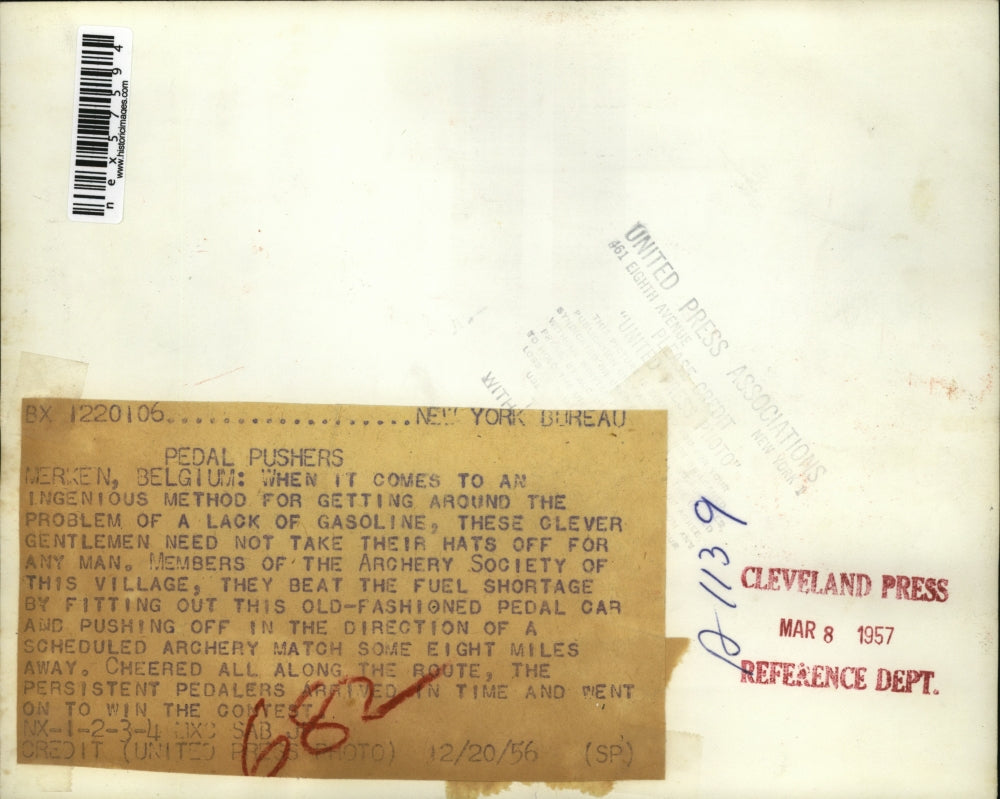 nex57594
www.historicimages.com
UNITED PRESS ASSOCIATIONS
461 EIGHTH AVENUE NEW YORK 1
PLEASE CREDIT
BX 1220106...................NEW YORK BUREAU
PEDAL PUSHERS
MERKEN, BELGIUM: WHEN IT COMES TO AN
INGENIOUS METHOD FOR GETTING AROUND THE
PROBLEM OF A LACK OF GASOLINE, THESE CLEVER
GENTLEMEN NEED NOT TAKE THEIR HATS OFF FOR
ANY MAN. MEMBERS OF THE ARCHERY SOCIETY OF
THIS VILLAGE, THEY BEAT THE FUEL SHORTAGE
BY FITTING OUT THIS OLD-FASHIONED PEDAL CAR
AND PUSHING OFF IN THE DIRECTION OF A
SCHEDULED ARCHERY MATCH SOME EIGHT MILES
AWAY. CHEERED ALL ALONG THE ROUTE, THE
PERSISTENT PEDALERS ARRIVED IN TIME AND WENT
ON TO WIN THE CONTEST
NX-1-2-3-4 SAB
CREDIT (UNITED PRESS PHOTO) 12/20/56 (SP)
682
A-1139
CLEVELAND PRESS
MAR 8 1957
REFERENCE DEPT.